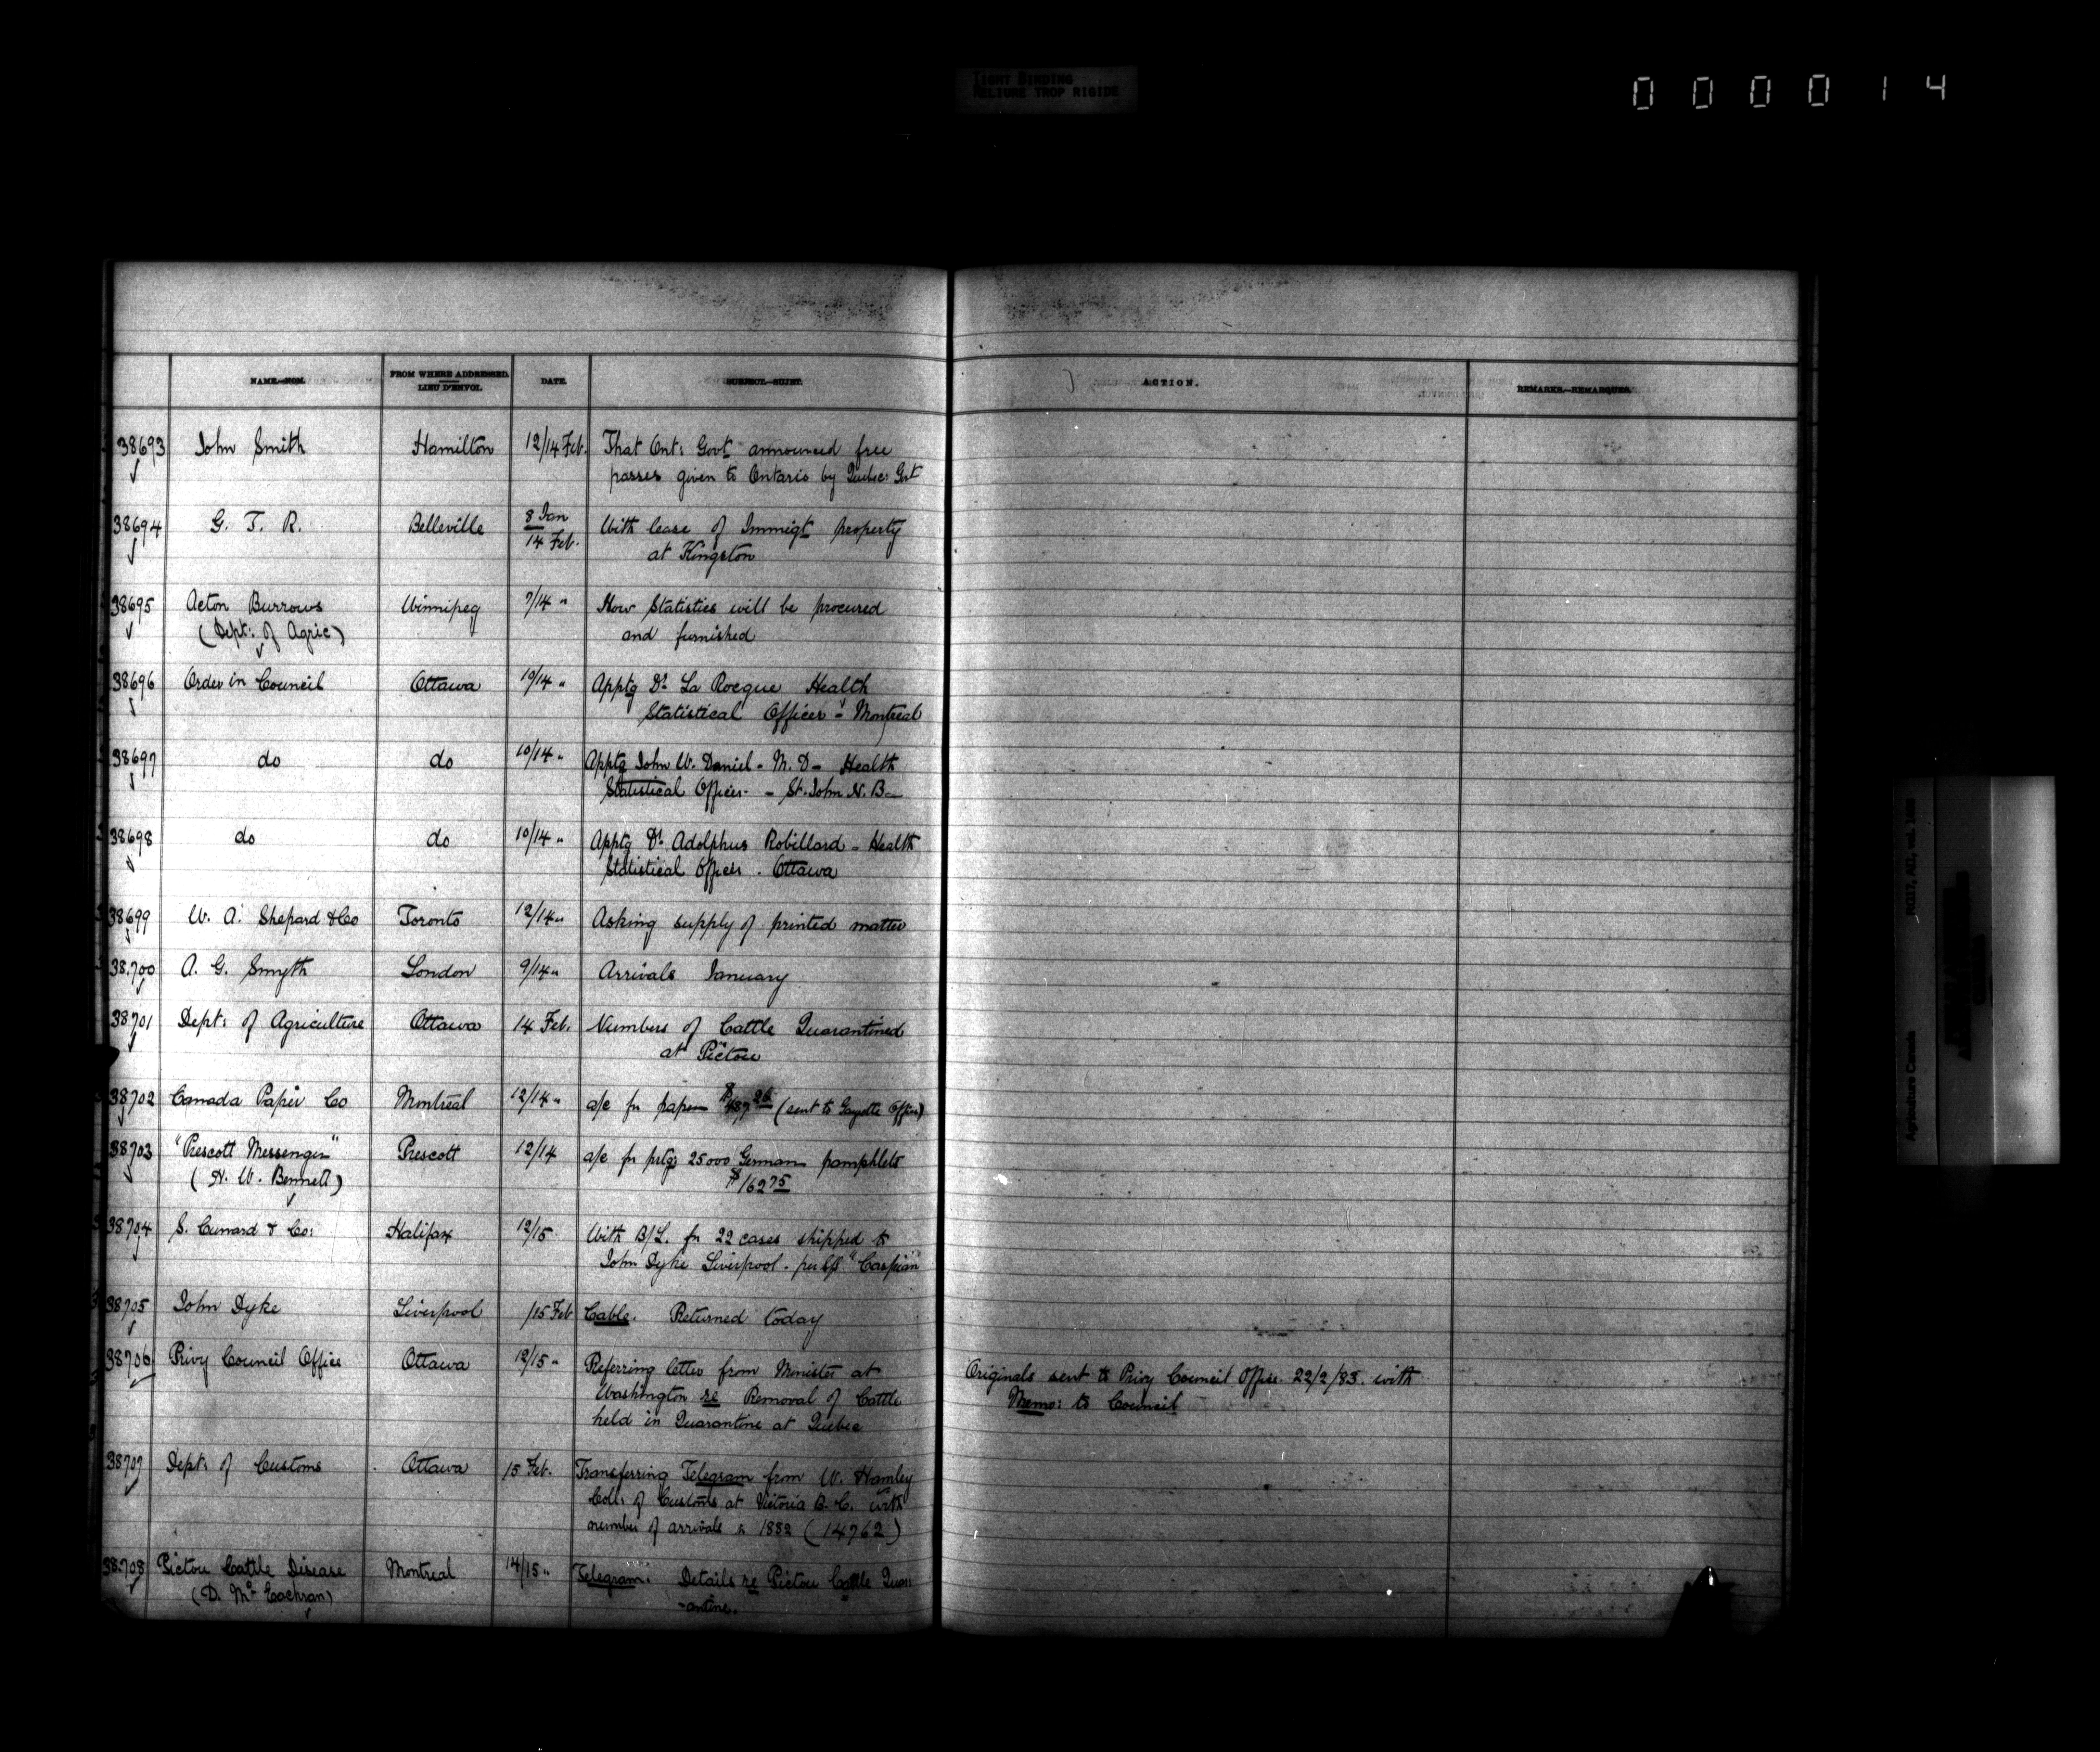 TIGHT BINDING
RELIURE TROP RIGIDE
000014
NAME.—NOM.
FROM WHERE ADDRESSED.
LIEU D'ENVOI.
DATE.
SUBJECT.—SUJET.
ACTION.
REMARKS.—REMARQUES.
38693 John Smith Hamilton 12/14 Feb. That Ont: Govt announced free
passes given to Ontario by Quebec Govt
38694 G. T. R. Belleville 8 Jan
14 Feb. With lease of Immigt property
at Kingston
38695 Acton Burrows Winnipeg 7/14 " How Statistics will be procured
(Dept: of Agric) and furnished
38696 Order in Council Ottawa 10/14 " Apptg Dr La Rocque Health
Statistical Officer - Montreal
38697 do do 10/14 " Apptg John W. Daniel - M. D - Health
Statistical Officer - St. John N. B -
38698 do do 10/14 " Apptg Dr Adolphus Robillard - Health
Statistical Officer . Ottawa
38699 W. A. Shepard & Co Toronto 12/14 " Asking supply of printed matter
38.700 A. G. Smyth London 9/14 " Arrivals January
38701 Dept: of Agriculture Ottawa 14 Feb. Numbers of Cattle Quarantined
at Pictou
38702 Canada Paper Co Montreal 12/14 " a/c for paper (sent to Gazette Office)
38703 "Prescott Messenger" Prescott 12/14 a/c for prtg 25000 German pamphlets
(H. W. Bennett) $162 75
38704 S. Cunard & Co: Halifax 12/15 With B/L. for 22 cases shipped to
John Dyke Liverpool - per S/S "Caspian"
38705 John Dyke Liverpool /15 Feb Cable. Returned today
38706 Privy Council Office Ottawa 12/15 " Referring letter from Minister at
Washington re Removal of Cattle
held in Quarantine at Quebec
Originals sent to Privy Council Office. 22/2/83. with
Memo: to Council
38707 Dept: of Customs Ottawa 15 Feb. Transferring Telegram from W. Hamley
Coll: of Customs at Victoria B. C. with
number of arrivals 1882 (14762)
38.708 Pictou Cattle Disease Montreal 14/15 " Telegram. Details re Pictou Cattle Quar
(D. Mc Eachran) -antine.
RG17, AII, vol. 
Agriculture Canada